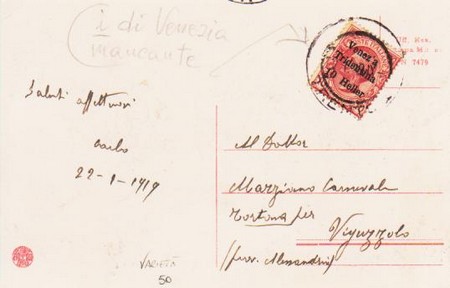 i di Venezia
mancante
Uff. Rev.
7479
Venez a
Tridentina
10 Heller
Saluti affettuosi
Carlo
22-1-1919
Al Dottor
Marziano Carnevale
Tortona per
Viguzzolo
(prov. Alessandria)
VARIETÀ
50